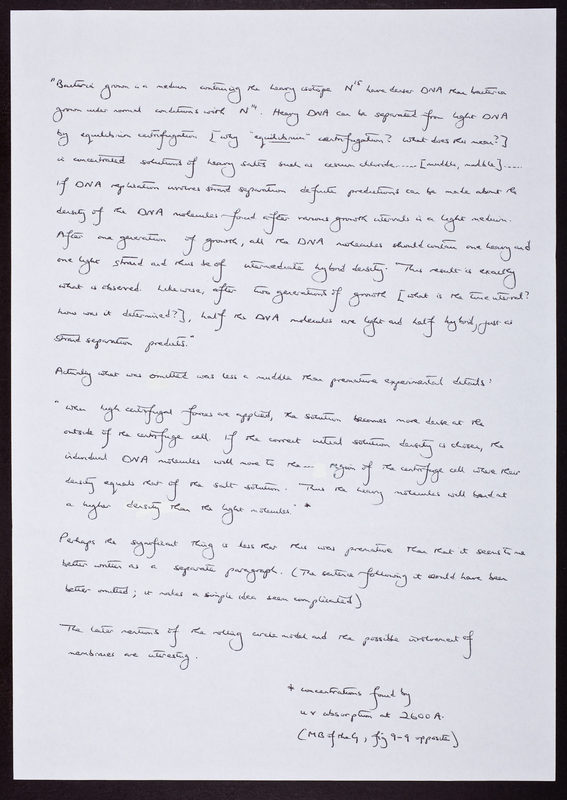 "Bacteria grown in a medium containing the heavy isotope N15 have denser DNA than bacteria
grown under normal conditions with N14. Heavy DNA can be separated from light DNA
by equilibrium centrifugation [why "equilibrium" centrifugation? What does this mean?]
in concentrated solutions of heavy salts such as cesium chloride...... [muddle, muddle]......
If DNA replication involves strand separation definite predictions can be made about the
density of the DNA molecules found after various growth intervals in a light medium.
After one generation of growth, all the DNA molecules should contain one heavy and
one light strand and thus be of intermediate hybrid density. This result is exactly
what is observed. Likewise, after two generations of growth [what is the time interval?
how was it determined?], half the DNA molecules are light and half hybrid, just as
strand separation predicts."
Actually what was omitted was less a muddle than premature experimental details:
"When high centrifugal forces are applied, the solution becomes more dense at the
outside of the centrifuge cell. If the correct initial solution density is chosen, the
individual DNA molecules will move to the ... region of the centrifuge cell where their
density equals that of the salt solution. Thus the heavy molecules will band at
a higher density than the light molecules." *
Perhaps the significant thing is less that this was premature than that it seems to me
better written as a separate paragraph. (The sentence following it would have been
better omitted; it makes a simple idea seem complicated)
The later mentions of the rolling circle model and the possible involvement of
membranes are interesting.
* concentrations found by
uv absorption at 2600 A.
(MB of the G, fig 9-9 opposite)